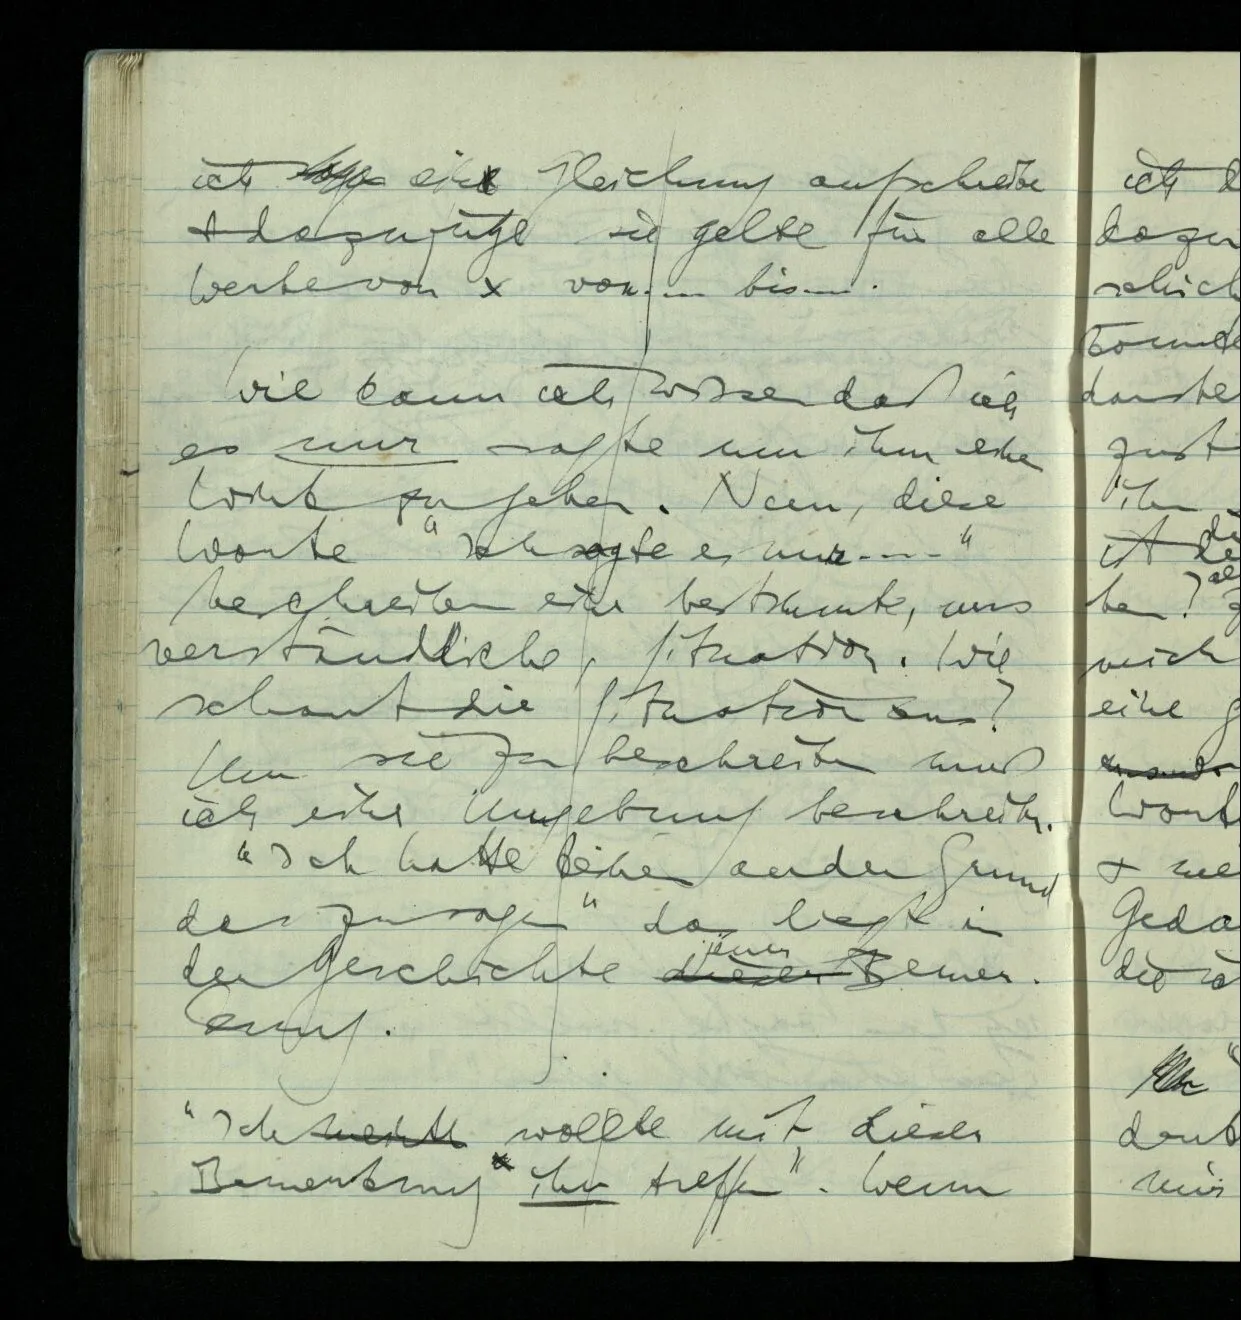 ich eine Gleichung aufschreibe
& dazufüge sie gelte für alle
Werte von x von.... bis.....
Wie kann ich wissen daß ich
es nur sagte um ihm eine
Wink zu geben. Nun, diese
Worte "Ich sagte es nur----"
beschreiben eine bestimmte, uns
verständliche, Situation. Wie
schaut die Situation aus?
Um sie zu beschreiben muß
ich eine Umgebung beschreiben.
"Ich hatte keinen andern Grund
das zu sagen" da liegt in
jener
der Geschichte dieser Bemer-
kung.
"Ich meinte wollte mit dieser
Bemerkung ihn treffen". Wenn
ich
dazu
ist
eine
Wort
&
Geda
die